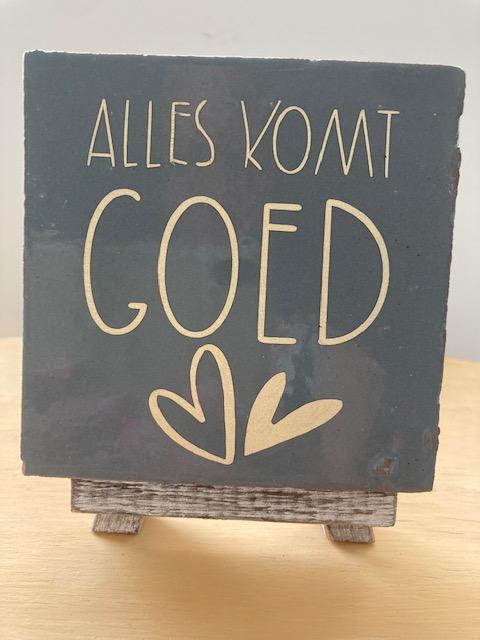 ALLES KOMT
GOED